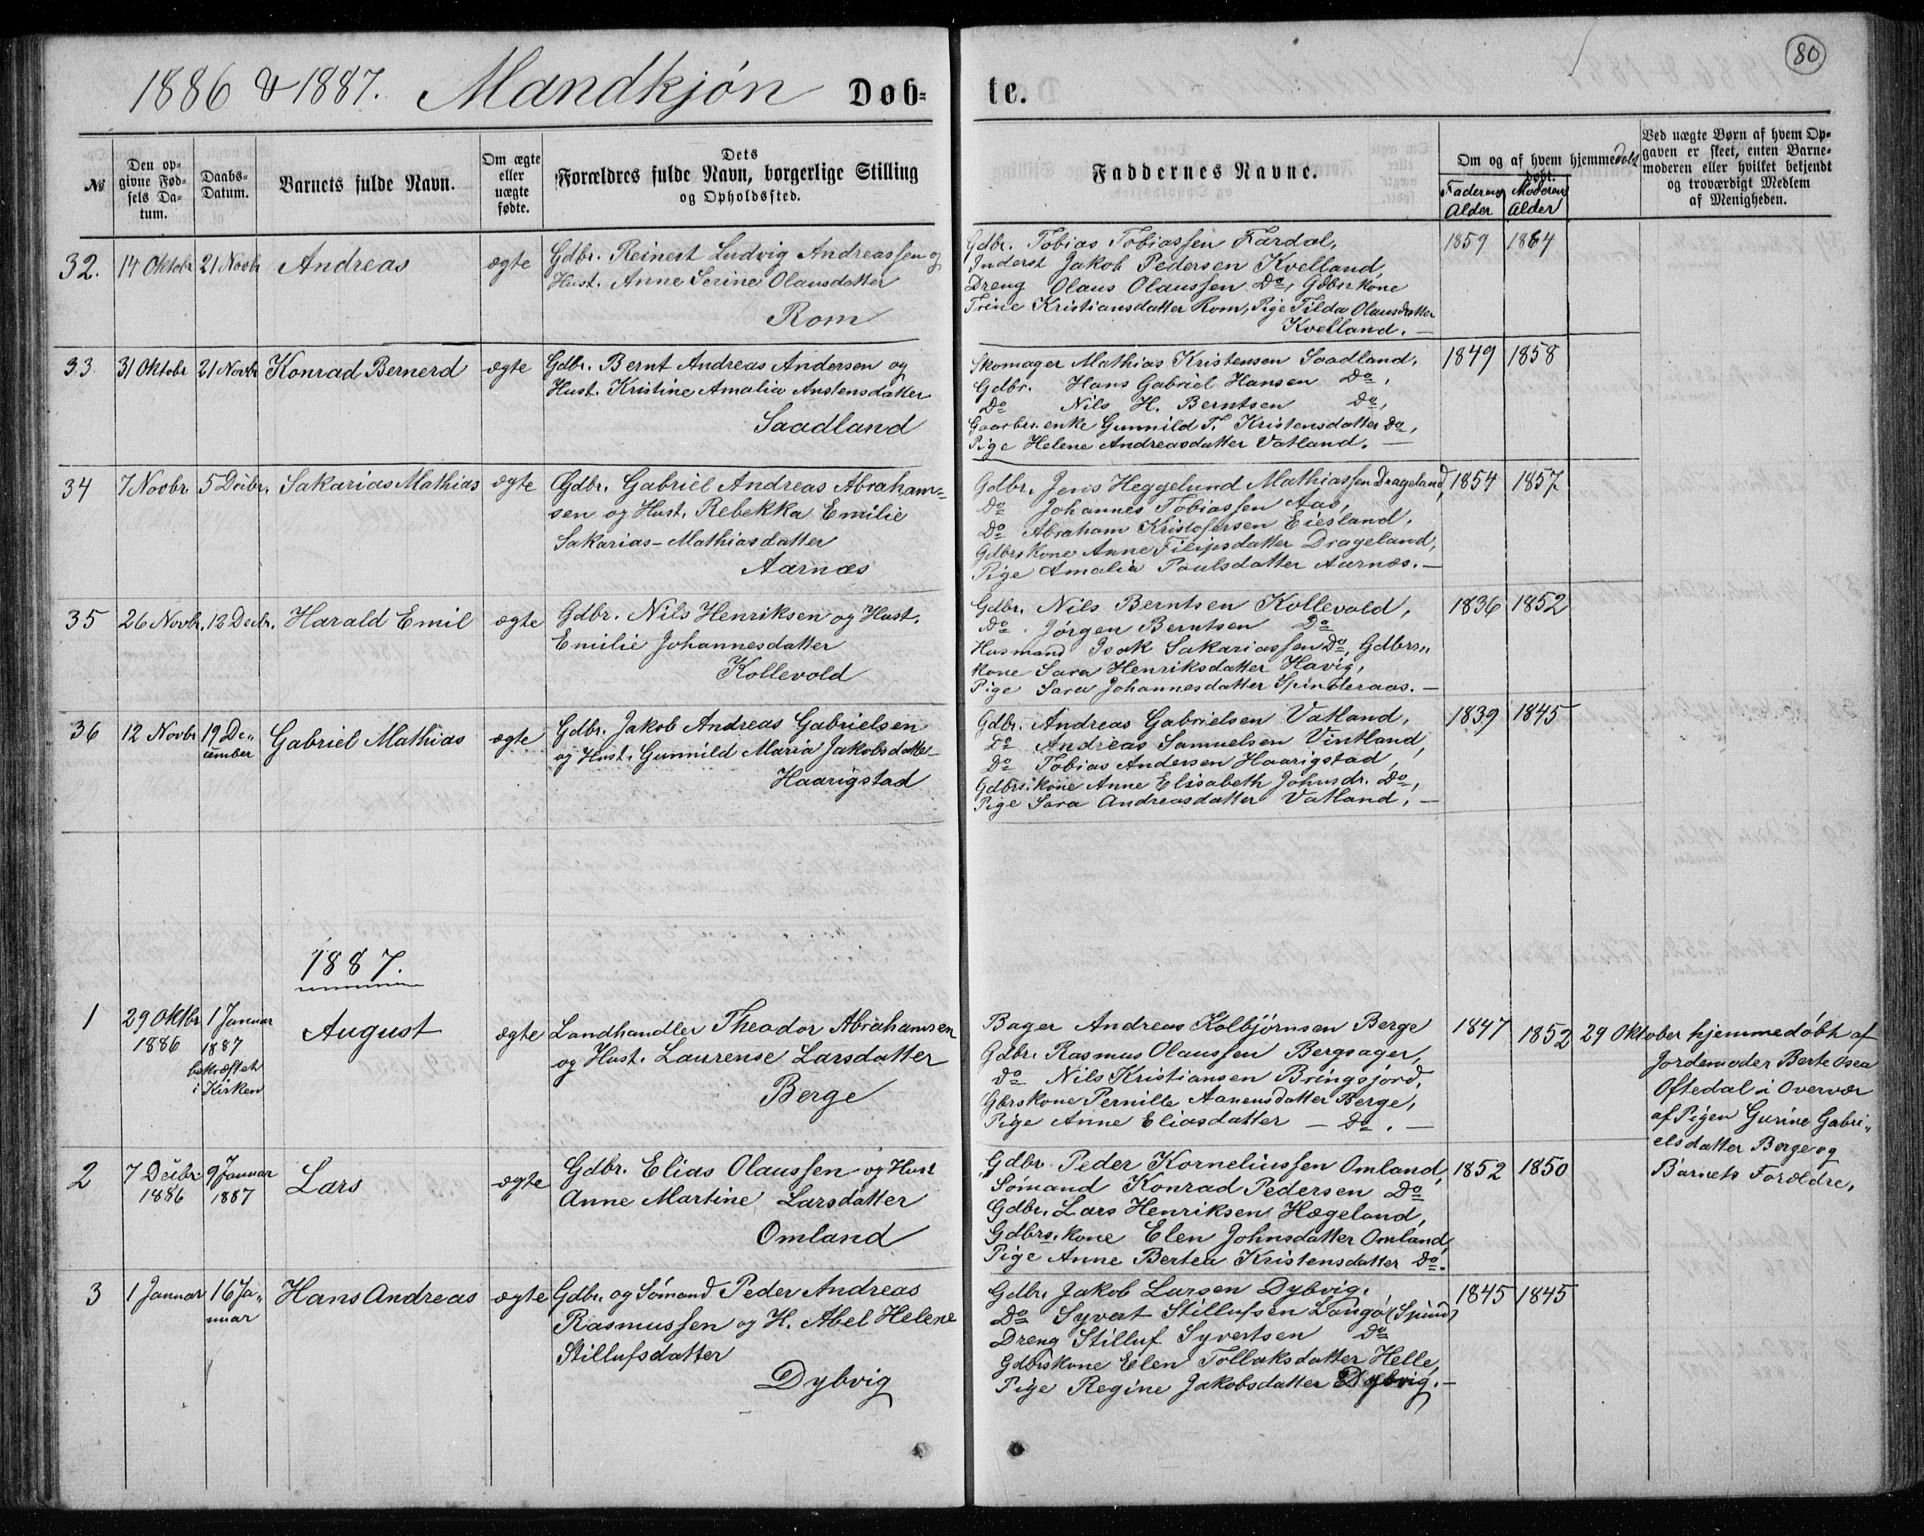 80
1886 & 1887. Mandkjøn Døb-te.
№
Den op-
givne Fød-
sels Da-
tum.
Daabs-
Datum.
Barnets fulde Navn.
Om ægte
eller
uægte
fødte.
Dets
Forældres fulde Navn, borgerlige Stilling
og Opholdssted.
Faddernes Navne.
Om og af hvem hjemmedøbt.
Faderens Alder
Moderens Alder
Ved uægte Børn af hvem Op-
gaven er skeet, enten Barne-
moderen eller hvilket bekjendt
og troværdigt Medlem
af Menigheden.
32. 14 Oktobr 21 Novbr Andreas ægte
Gdbr. Reinert Ludvig Andreassen og
Hust. Anne Serine Olausdatter
Rom
Gdbr. Tobias Tobiassen Fardal,
Inderst Jakob Pedersen Kvelland,
Dreng Olaus Olaussen Do, Gdbrkone
Trine Kristiansdatter Rom, Pige Tilda Olausdatter
Kvelland. —
1859 1864
33 31 Oktobr 21 Novbr Konrad Bernerd ægte
Gdbr. Bernt Andreas Andersen og
Hust. Kristine Amalia Anstensdatter
Saadland
Skomager Mathias Kristensen Saadland,
Gdbr. Hans Gabriel Hansen Do,
Do Nils H. Berntsen Do,
Gaardbr. enke Gunnild T. Kristensdatter Do,
Pige Helene Andreasdatter Vatland. —
1849 1858
34 7 Novbr 5 Decbr. Sakarias Mathias ægte
Gdbr. Gabriel Andreas Abraham-
sen og Hust. Rebekka Emilie
Sakarias-Mathiasdatter
Aarnæs
Gdbr. Jens Heggelund Mathiassen Drageland,
Do Johannes Tobiassen Aas,
Do Abraham Kristofersen Eiesland,
Gdbrskone Anne Filipsdatter Drageland,
Pige Amalia Paulsdatter Aarnæs. —
1854 1857
35 26 Novbr. 12 Decbr. Harald Emil ægte
Gdbr. Nils Henriksen og Hust.
Emilie Johannesdatter
Kollevold
Gdbr. Nils Berntsen Kollevold,
Do. Jørgen Berntsen Do
Husmand Isak Sakariassen Do, Gdbrs„
kone Sara Henriksdatter Havig,
Pige Sara Johannesdatter Spinderaas. —
1836 1852
36 12 Novbr 19 De„
cember Gabriel Mathias ægte
Gdbr. Jakob Andreas Gabrielsen
og Hust. Gunnild Maria Jakobsdatter
Haarigstad
Gdbr. Andreas Gabrielsen Vatland,
Do Andreas Samuelsen Vintland,
Do Tobias Andersen Haarigstad,
Gdbrs. kone Anne Elisabeth Johnsdr. Do,
Pige Sara Andreasdatter Vatland. —
1839 1845
1887.
1 29 Oktbr
1886
1 Januar
1887
bekræftet
i Kirken
August ægte
Landhandler Theodor Abrahamsen
og Hust. Laurense Larsdatter
Berge
Bager Andreas Kolbjørnsen Berge
Gdbr. Rasmus Olaussen Bergsager,
Do Nils Kristiansen Bringsjord,
Gbrskone Pernille Aanensdatter Berge,
Pige Anne Eliasdatter — Do. —
1847 1852
29 Oktober hjemmedøbt af
Jordemoder Berte Osea
Oftedal i Overvær
af Pigen Gurine Gabri„
elsdatter Berge og
Barnets Forældre.
2 7 Decbr
1886
9 Januar
1887
Lars ægte
Gdbr. Elias Olaussen og Hust
Anne Martine Larsdatter
Omland
Gdbr. Peder Korneliussen Omland,
Sømand Konrad Pedersen Do
Gdbr. Lars Henriksen Hægeland,
Gdbrs. kone Elen Johnsdatter Omland,
Pige Anne Bertea Kristensdatter Do.
1852 1850
3 1 Januar 16 Ja„
nuar Hans Andreas ægte
Gdbr. og Sømand Peder Andreas
Rasmussen og H. Abel Helene
Stillufsdatter
Dybvig
Gdbr. Jakob Larsen Dybvig.
Do Syvert Stillufsen Langø (Spind)
Dreng Stilluf Syvertsen Do
Gdbrskone Elen Tollaksdatter Helle,
Pige Regine Jakobsdatter Dybvig. —
1845 1845